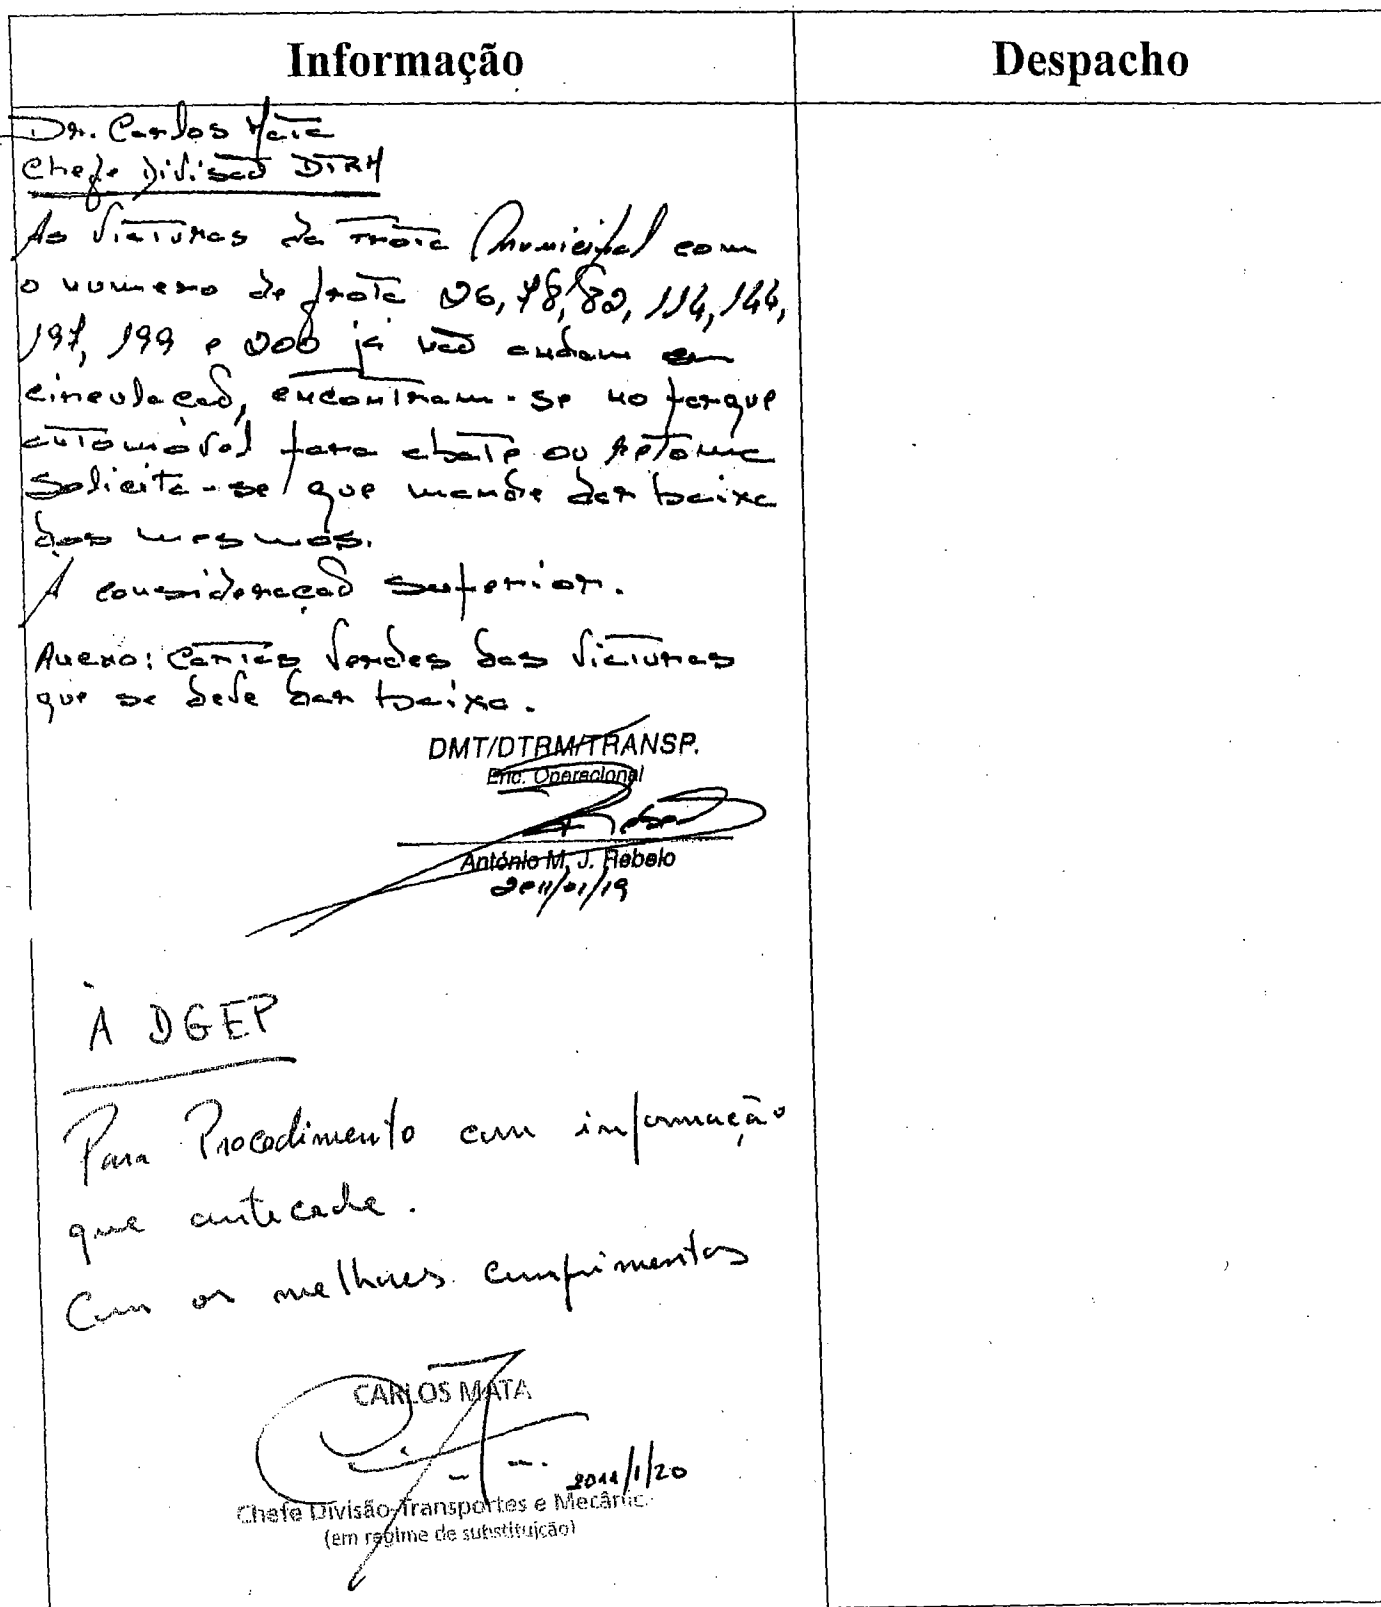 Informação
Despacho
Dr. Carlos Mata
Chefe Divisão DTRM
As viaturas da frota Municipal com
o numero de frota 26, 78, 82, 114, 144,
197, 199 e 200 já não andam em
circulação, encontram-se no parque
automóvel para abate ou retoma
Solicita-se que mande dar baixa
dos mesmos.
À consideração superior.
Anexo: Cartas Verdes das viaturas
que se deve dar baixa.
DMT/DTRM/TRANSP.
Enc. Operacional
António M. J. Rebelo
2011/01/19
À DGEP
Para Procedimento com informação
que antecede.
Com os melhores cumprimentos
CARLOS MATA
2011/1/20
Chefe Divisão-Transportes e Mecânic.
(em regime de substituição)